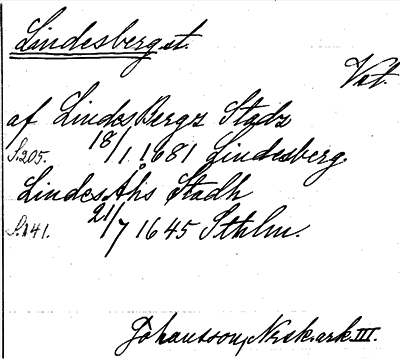 Lindesberg. st.
Vet.
af Lindes Bergz Stadz
S. 205. 18/1 1681 Lindesberg.
Lindes Åhs Stadh
S. 141. 21/7 1645 Sthlm.
Johansson, Norsk. ark. III.